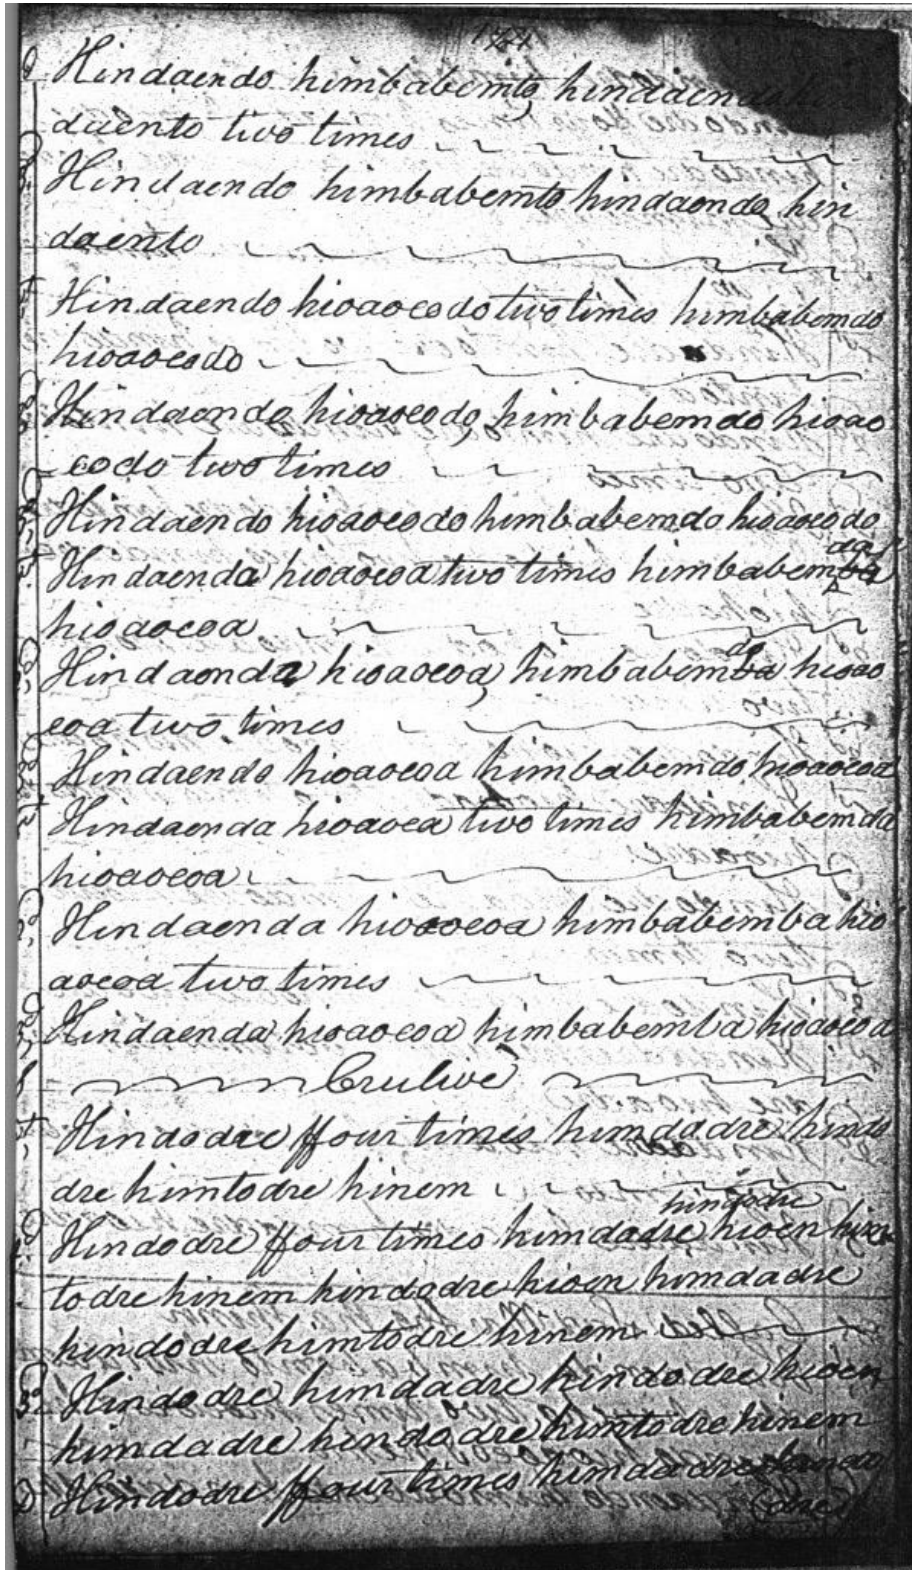 Hindaendo himbabemto, hindaendo
daento two times
Hindaendo himbabemto hindaendo, hin
daento
Hindaendo hioaoeodo two times himbabemdo
hioaoeodo
Hindaendo, hioaoeodo, himbabemdo hioao
eodo two times
Hindaendo hioaoeodo himbabemdo hioaoeodo
da
Hindaenda hioaoeoa two times himbabemba
hioaoeoa
da
Hindaonda hioaoeoa, himbabemba hioao
eoa two times
Hindaendo hioaoeoa himbabemdo hioaoeoa
Hindaenda hioaoea two times himbabemda
hioaoeoa
Hindaenda hioaoeoa himbabemba hio
aoeoa two times
Hindaenda hioaoeoa himbabemba hioaoeoa
Hindodre ffour times himdadre hindo
dre himtodre hinem
hindodre
Hindodre ffour times himdadre hioen him
todre hinem hindodre hioen himdadre
hindodre himtodre hinem
3d Hindodre himdadre hindodre hioen
himdadre hindodre himtodre hinem
Hindodre ffour times himdadre
dre